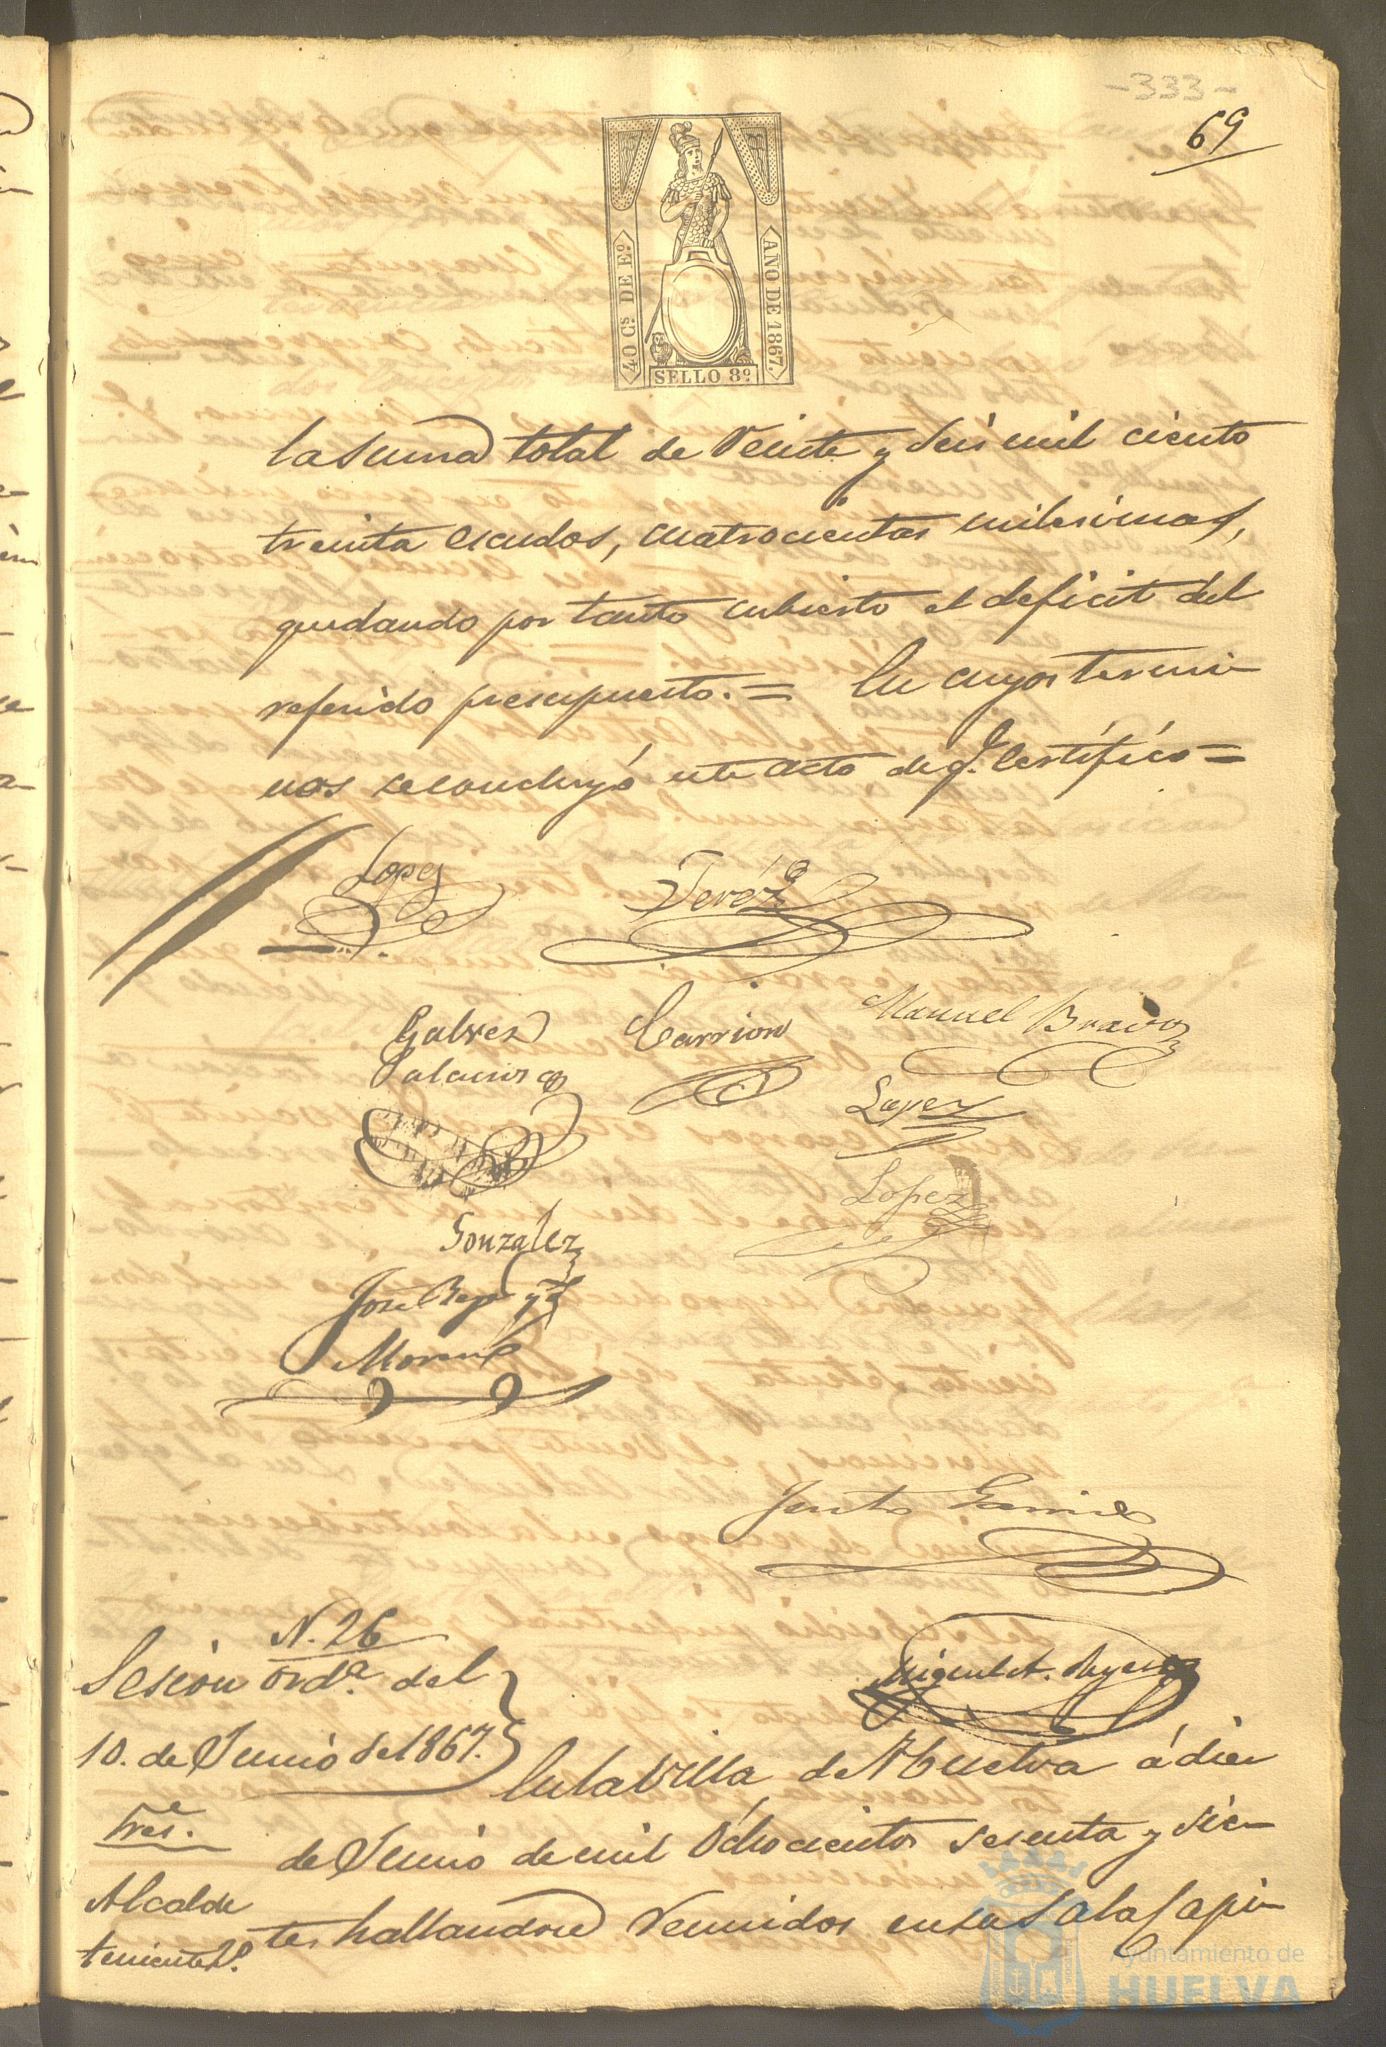 -333-
69
40 Cs. DE Eº.
AÑO DE 1867.
SELLO 8º
la suma total de Veinte y Seis mil ciento
treinta escudos, cuatrocientas milesimas,
quedando por tanto cubierto el deficit del
referido presupuesto. = En cuyos termi-
nos se concluyó este acto de q. Certifico =
Lopez
Jeréz
Galvez
Palacios
Carrion
Manuel Bravo
Lopez
Lopez
Gonzalez
José
Moreno
Justo
N. 26
Sesion ordª. del
10. de Junio de 1867.
En la Villa de Huelva á diez
Sres.
de Junio de mil Ochocientos sesenta y sie-
Alcalde
te, hallandose reunidos en su Sala Capi-
teniente
Ayuntamiento de
HUELVA